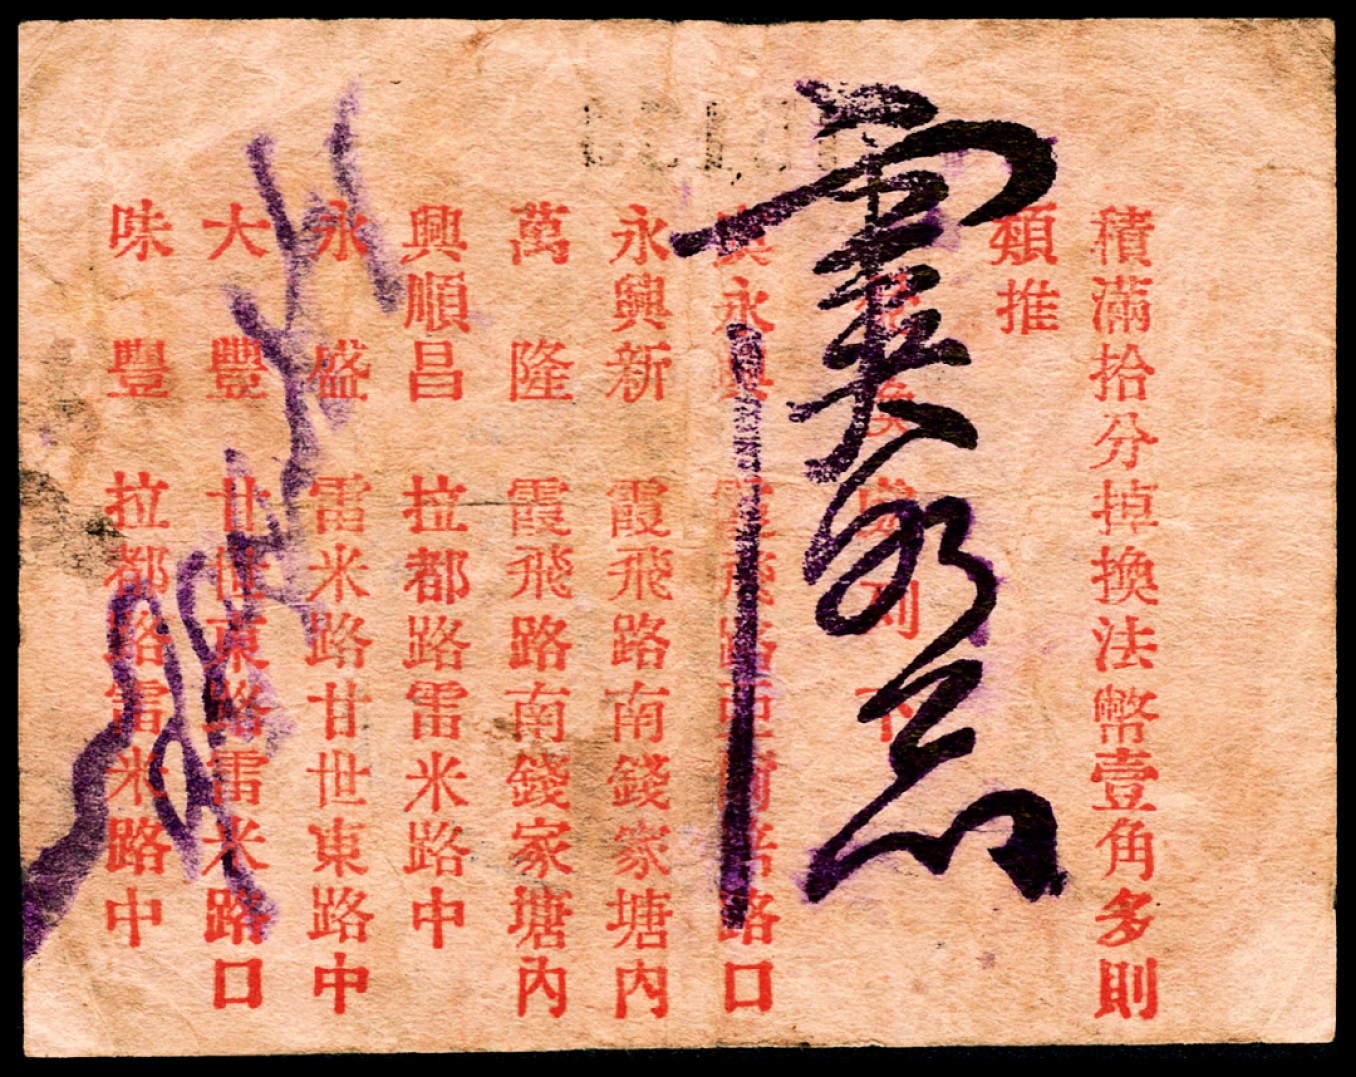 積滿拾分掉換法幣壹角多則
類推
換 列下
興永興 霞飛路亞爾培路口
永興新 霞飛路南錢家塘內
萬隆 霞飛路南錢家塘內
興順昌 拉都路雷米路中
永盛 雷米路甘世東路中
大豐 甘世東路雷米路口
味豐 拉都路雷米路中